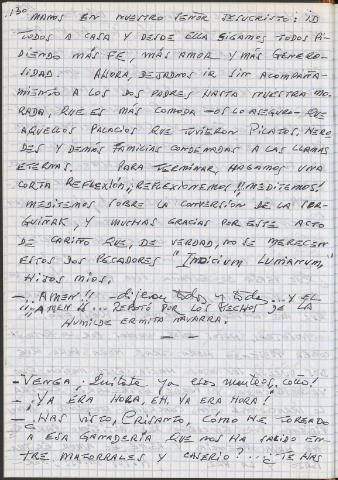 130
MANOS EN NUESTRO SEÑOR JESUCRISTO: ID
TODOS A CASA Y DESDE ELLA SIGAMOS TODOS PI-
DIENDO MÁS FE, MÁS AMOR Y MÁS GENERO-
SIDAD. AHORA, DEJADNOS IR SIN ACOMPAÑA-
MIENTO A LOS DOS PADRES HASTA NUESTRA MO-
RADA, QUE ES MÁS COMODA -OS LO ASEGURO- QUE
AQUELLOS PALACIOS QUE TUVIERON PILATOS, HERO
DES Y DEMÁS FAMILIAS CONDENADAS A LAS LLAMAS
ETERNAS. PARA TERMINAR, HAGAMOS UNA
CORTA REFLEXIÓN, ¡REFLEXIONEMOS! ¡MEDITEMOS!
MEDITEMOS SOBRE LA CONVERSIÓN DE LA
Y MUCHAS GRACIAS POR ESSE ACTO
DE CARIÑO QUE, DE VERDAD, NO SE MERECEN
ESTOS DOS PECADORES "INDICIUM LUMANUM,"
HIJOS MIOS.
- ¡¡AMEN!! - dijeron todos y todas... Y EL
¡¡AMEN!!... REBOTÓ POR LOS TECHOS DE LA
HUMILDE ERMITA NAVARRA.
- VENGA, ¡Quitate ya esos manteos, coño!
- ¡YA ERA HORA, EH, YA ERA HORA!
- ¿HAS VISTO, CRISANTO, CÓMO HE TOREADO
A ESA GANADERÍA QUE NOS HA SALIDO EN-
TRE MATORRALES Y CASERIO?... ¿TE HAS